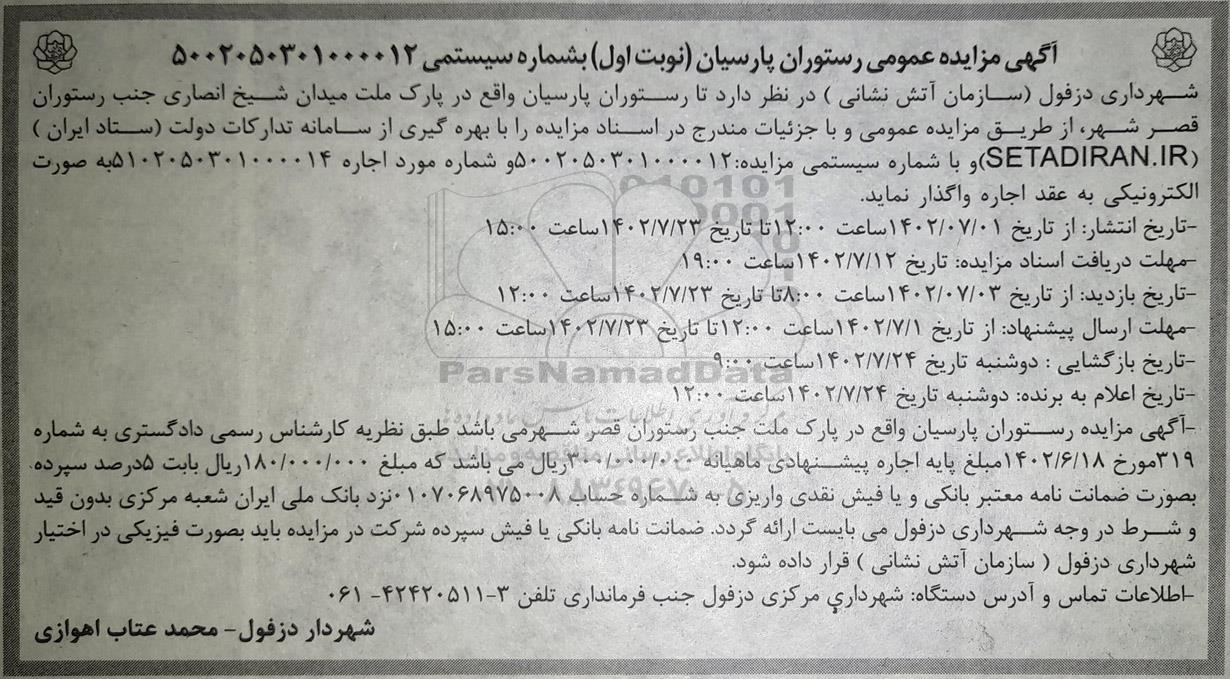 آگهی مزایده عمومی رستوران پارسیان (نوبت اول) بشماره سیستمی ۵۰۰۲۰۵۰۳۰۱۰۰۰۰۱۲
شهرداری دزفول (سازمان آتش نشانی ) در نظر دارد تا رستوران پارسیان واقع در پارک ملت میدان شیخ انصاری جنب رستوران
قصر شهر، از طریق مزایده عمومی و با جزئیات مندرج در اسناد مزایده را با بهره گیری از سامانه تدارکات دولت (ستاد ایران )
(SETADIRAN.IR)و با شماره سیستمی مزایده:۵۰۰۲۰۵۰۳۰۱۰۰۰۰۱۲و شماره مورد اجاره ۵۱۰۲۰۵۰۳۰۱۰۰۰۰۱۴به صورت
الکترونیکی به عقد اجاره واگذار نماید.
-تاریخ انتشار: از تاریخ ۱۴۰۲/۰۷/۰۱ساعت ۱۲:۰۰تا تاریخ ۱۴۰۲/۷/۲۳ساعت ۱۵:۰۰
-مهلت دریافت اسناد مزایده: تاریخ ۱۴۰۲/۷/۱۲ساعت ۱۹:۰۰
-تاریخ بازدید: از تاریخ ۱۴۰۲/۰۷/۰۳ساعت ۸:۰۰تا تاریخ ۱۴۰۲/۷/۲۳ساعت ۱۲:۰۰
-مهلت ارسال پیشنهاد: از تاریخ ۱۴۰۲/۷/۱ساعت ۱۲:۰۰تا تاریخ ۱۴۰۲/۷/۲۳ساعت ۱۵:۰۰
-تاریخ بازگشایی : دوشنبه تاریخ ۱۴۰۲/۷/۲۴ساعت ۹:۰۰
ParsNamadData
-تاریخ اعلام به برنده: دوشنبه تاریخ ۱۴۰۲/۷/۲۴ساعت ۱۲:۰۰
-آگهی مزایده رستوران پارسیان واقع در پارک ملت جنب رستوران قصر شهرمی باشد طبق نظریه کارشناس رسمی دادگستری به شماره
۳۱۹مورخ ۱۴۰۲/۶/۱۸مبلغ پایه اجاره پیشنهادی ماهیانه ۳۰۰/۰۰۰/۰۰۰ریال می باشد که مبلغ ۱۸۰/۰۰۰/۰۰۰ریال بابت ۵درصد سپرده
بصورت ضمانت نامه معتبر بانکی و یا فیش نقدی واریزی به شماره حساب ۰۱۰۷۰۶۸۹۷۵۰۰۸نزد بانک ملی ایران شعبه مرکزی بدون قید
و شرط در وجه شهرداری دزفول می بایست ارائه گردد. ضمانت نامه بانکی یا فیش سپرده شرکت در مزایده باید بصورت فیزیکی در اختیار
شهرداری دزفول ( سازمان آتش نشانی ) قرار داده شود.
-اطلاعات تماس و آدرس دستگاه: شهرداری مرکزی دزفول جنب فرمانداری تلفن ۳-۴۲۴۲۰۵۱۱- ۰۶۱
شهردار دزفول- محمد عتاب اهوازی